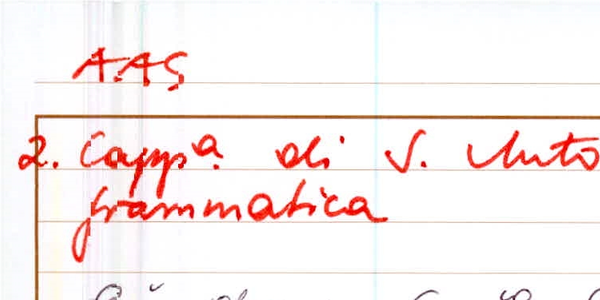 AAS
2. Capp.a di S. Anto
grammatica